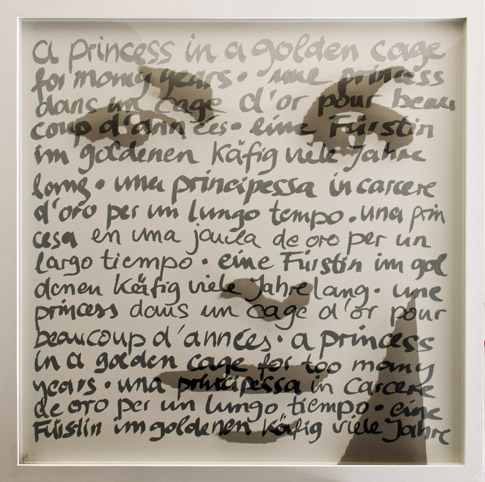 a princess in a golden cage
for many years • une princess
dans un cage d'or pour beau
coup d'années • eine Fürstin
im goldenen Käfig viele Jahre
lang • una principessa in carcere
d'oro per un lungo tempo • una prin
cesa en una jaula de oro per un
largo tiempo • eine Fürstin im gol
denen Käfig viele Jahre lang • une
princess dans un cage d'or pour
beaucoup d'années • a princess
in a golden cage for too many
years • una principessa in carcere
de oro per un lungo tiempo • eine
Fürstin im goldenen Käfig viele Jahre